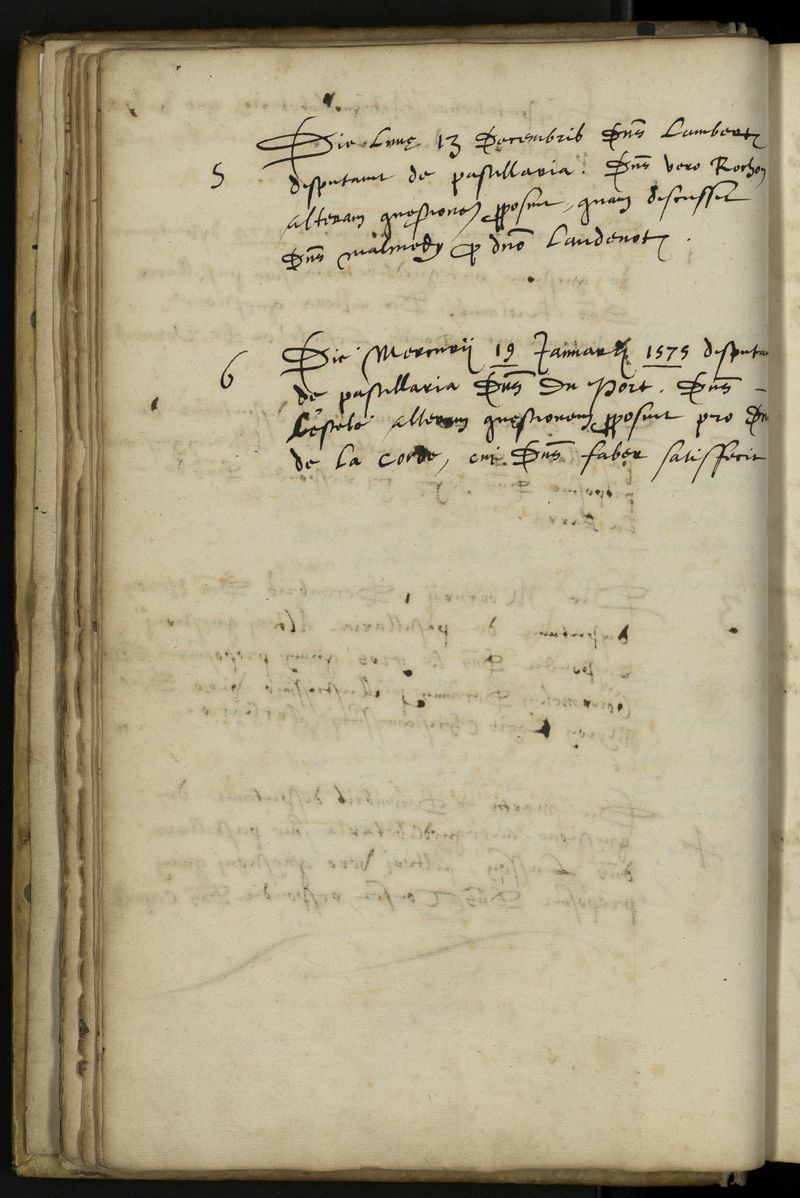 5 Die Lunę 13 Decembris Dns Lambert
disputavit de pastillaria. Dns vero Rochon
alteram quęstionem proposuit, quam discussit
Dns Malmedy pro dno Laudenot.
6 Die Mercurii 19 Januarii 1575 disputa
de pastillaria Dns Du Port. Dns
L'estelé alteram quęstionem proposuit pro
de La Corde, cui Dns faber satisfecit